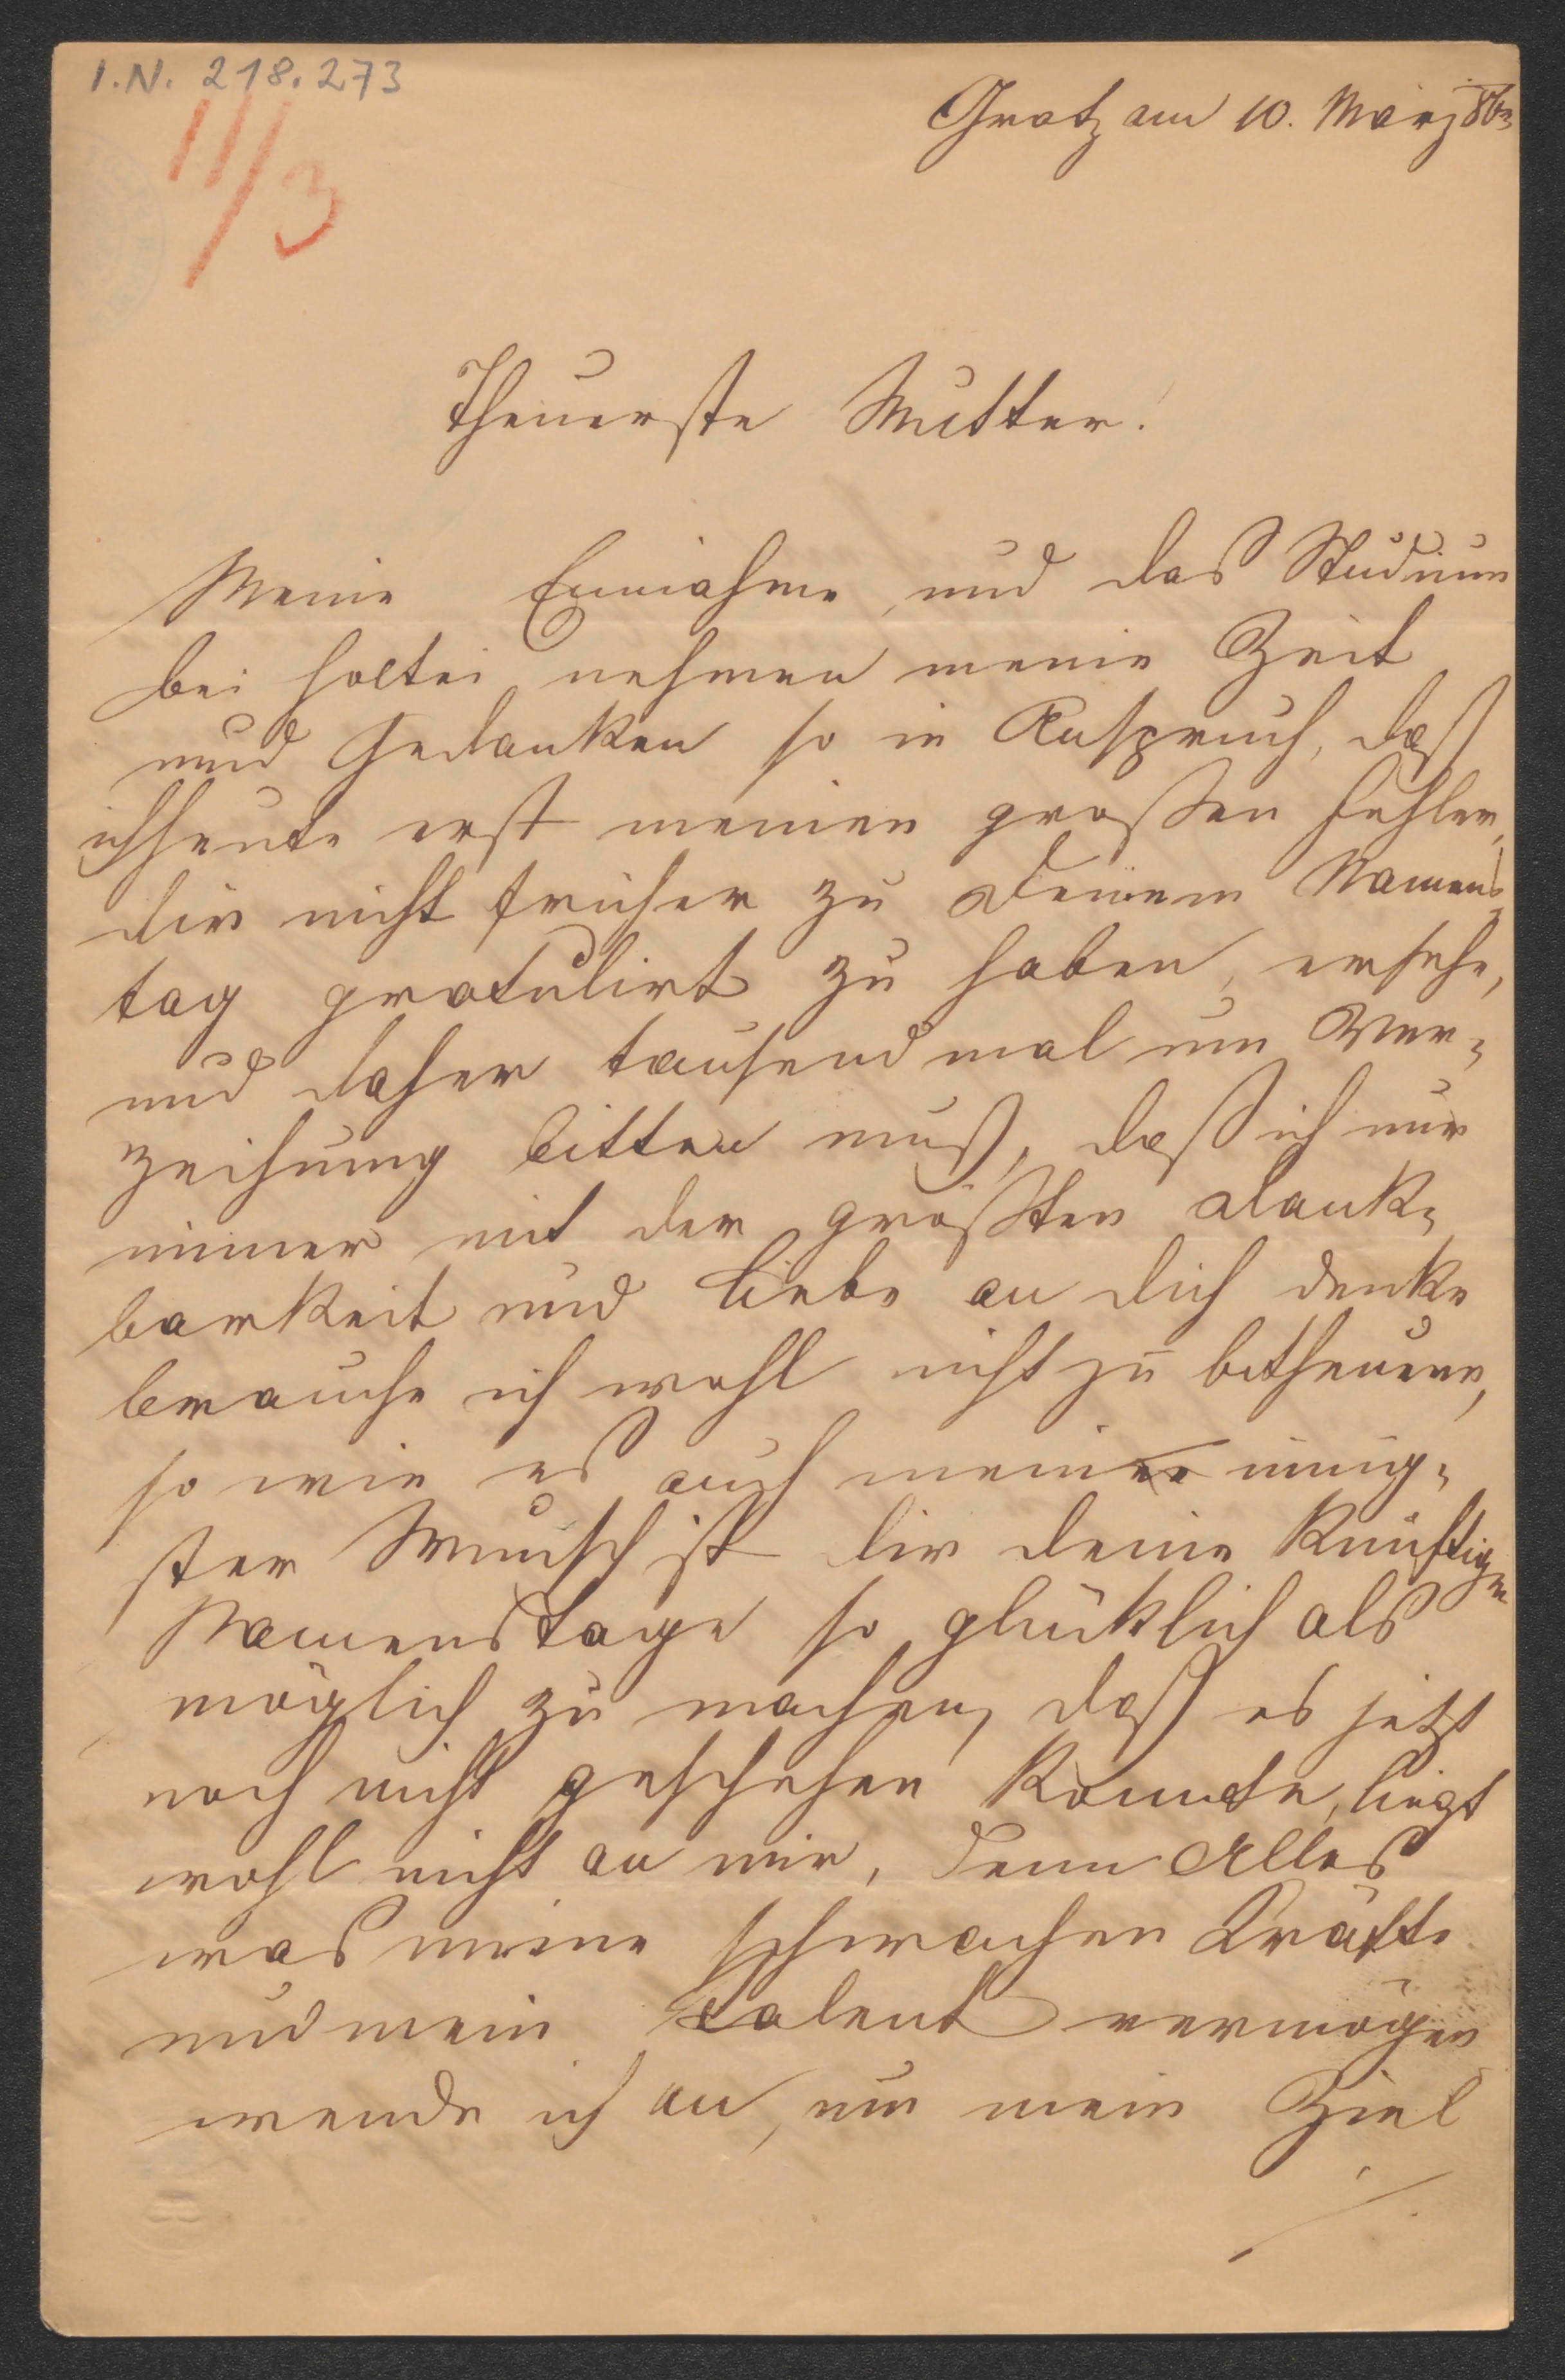 I.N. 218.273
11/3
Gratz am 10. März
Theuerste Mutter!
Meine Einnahme und das Studium
bei Holtei nehmen meine Zeit
und Gedanken so in Anspruch, daß
ich heute erst meinen großen Fehler,
dir nicht früher zu Deinem Namens-
tag gratulirt zu haben, ersehe,
und daher tausend mal um Ver-
zeihung bitten muß, daß ich nur
immer mit der größten Dank-
barkeit und Liebe an dich denke
brauche ich wohl nicht zu betheuern,
so wie es auch mein innig-
ster Wunsch ist dir deine künftigen
Namenstage so glücklich als
möglich zu machen, daß es jetzt
noch nicht geschehen konnte, liegt
wohl nicht an mir, denn Alles
was meine schwachen Kräfte
und mein Talent vermögen
wende ich an, um mein Ziel
./.